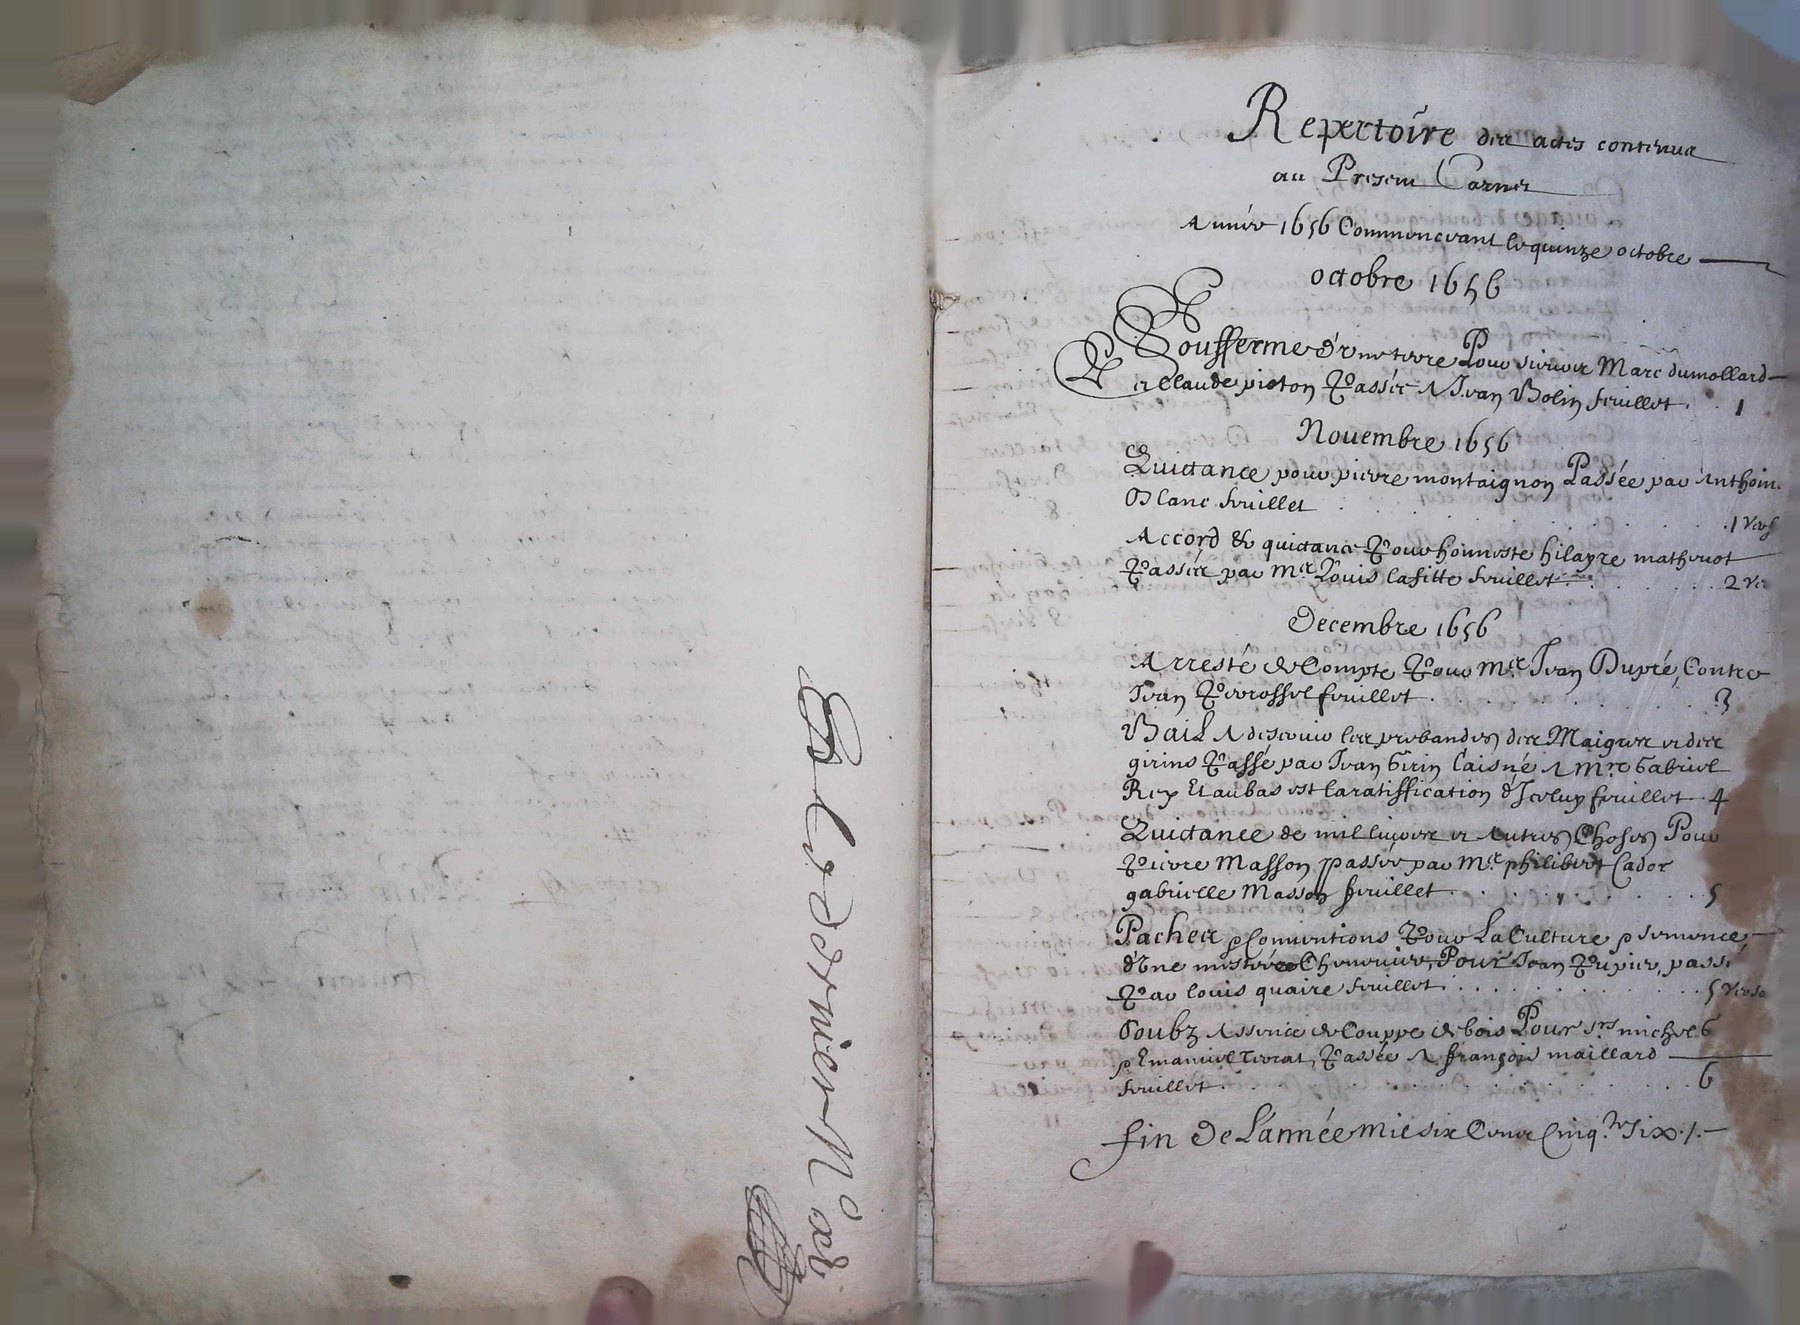 Es le dernier N.o
Repertoire des actes contenus
au Present Carnet
Année 1656 Commenceant le quinze octobre
octobre 1656
Soufferme d'vne terre Pour sieurs Marc dumollard
et Claude pioton Passée A Jean Bolin feuillet . . 1
Nouembre 1656
Quictance pour pierre montaignon Passée par Anthoin
Blanc feuillet . . . . . 1 verso
Accord & quictance Pour honneste hilayre matheuot
Passée par Mre Louis lafitte feuillet . . . . . 2 ve
Decembre 1656
Arresté de Compte Pour Mre Jean Dupré, Contre
Jean Perrossel feuillet . . . . . 3
Bail A desseruir les prebandes des Maigres et des
girins Passé par Jean Girin laisné A Mre Gabriel
Rey Et au bas est la ratiffication d'Iceluy feuillet . 4
Quictance de mil liures et Autres Choses Pour
Pierre Masson passée par Mre philibert Cador
gabrielle Masson feuillet . . . . . 5
Paches & Conuentions Pour La Culture & semence
d'vne Cheneuier, Pour Jean Pupier, passé
Par louis quaire feuillet . . . . . 5 verso
Soubz Assence de Couppe de bois Pour srs michel
& Emanuel Terrat, Passée A françois maillard
feuillet . . . . . 6
fin de L'année mil six Cent Cinq.te Six ./.